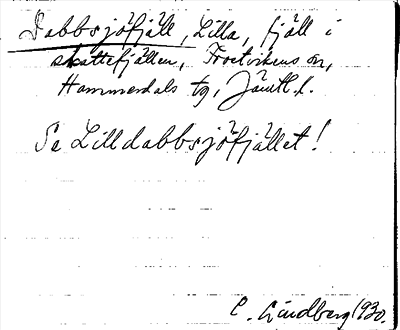 Dabbsjöfjäll, Lilla, fjäll i
skattefjällen, Frostvikens sn,
Hammerdals tg, Jämtl. l.
Se Lilldabbsjöfjället!
C. Lindberg 1930.